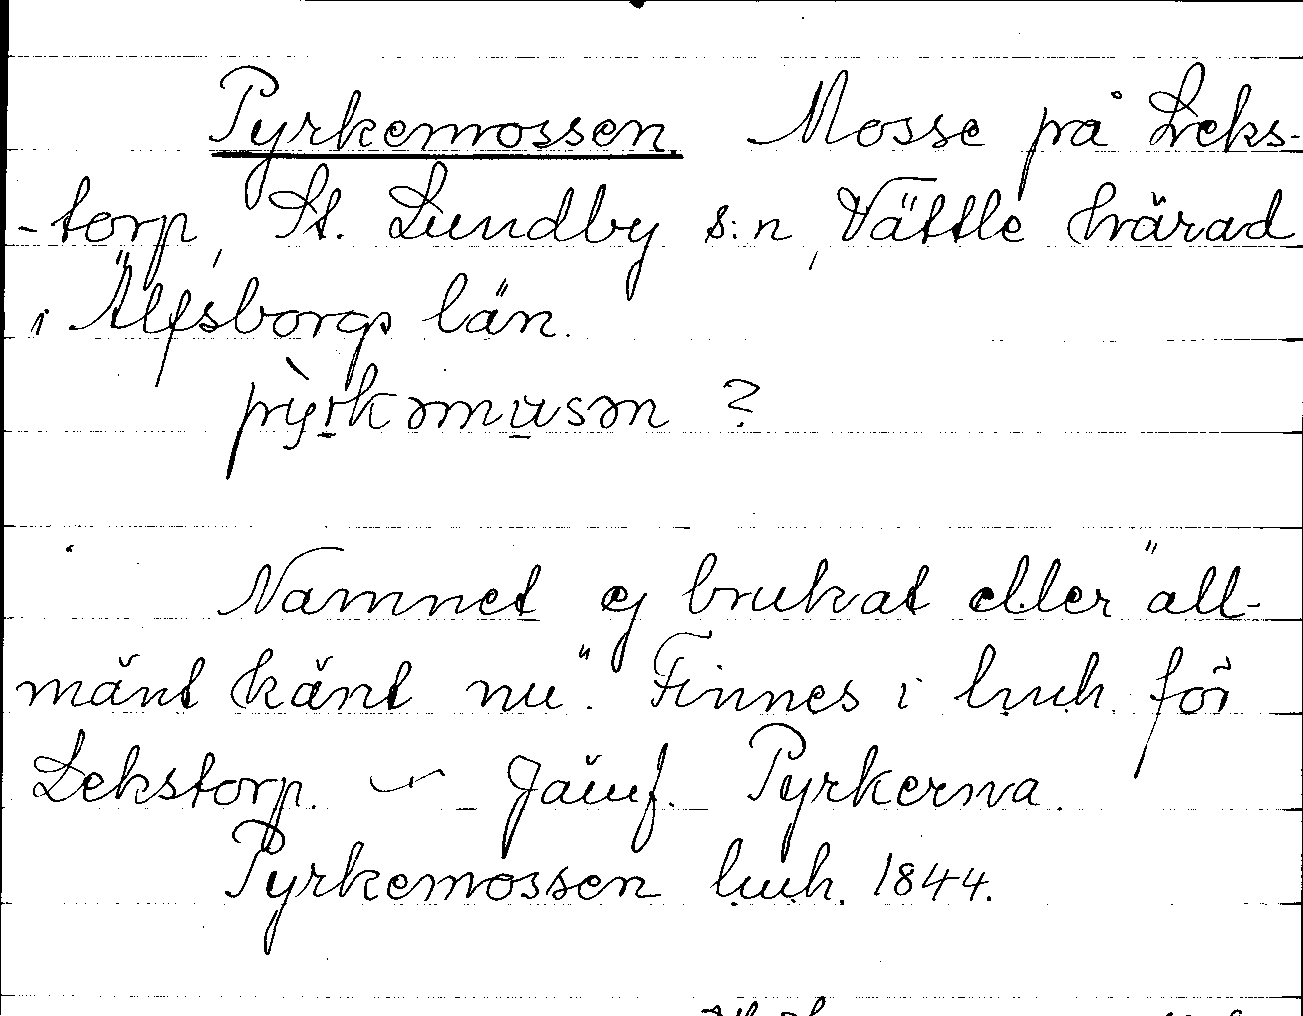 Pyrkemossen. Mosse på Leks-
-torp, St. Lundby s:n, Vättle härad
i Älfsborgs län.
pỳrkəmusən ?
Namnet ej brukat eller "all-
mänt känt nu". Finnes i l.u.h. för
Lekstorp. — Jämf. Pyrkerna.
Pyrkemossen l.u.h. 1844.